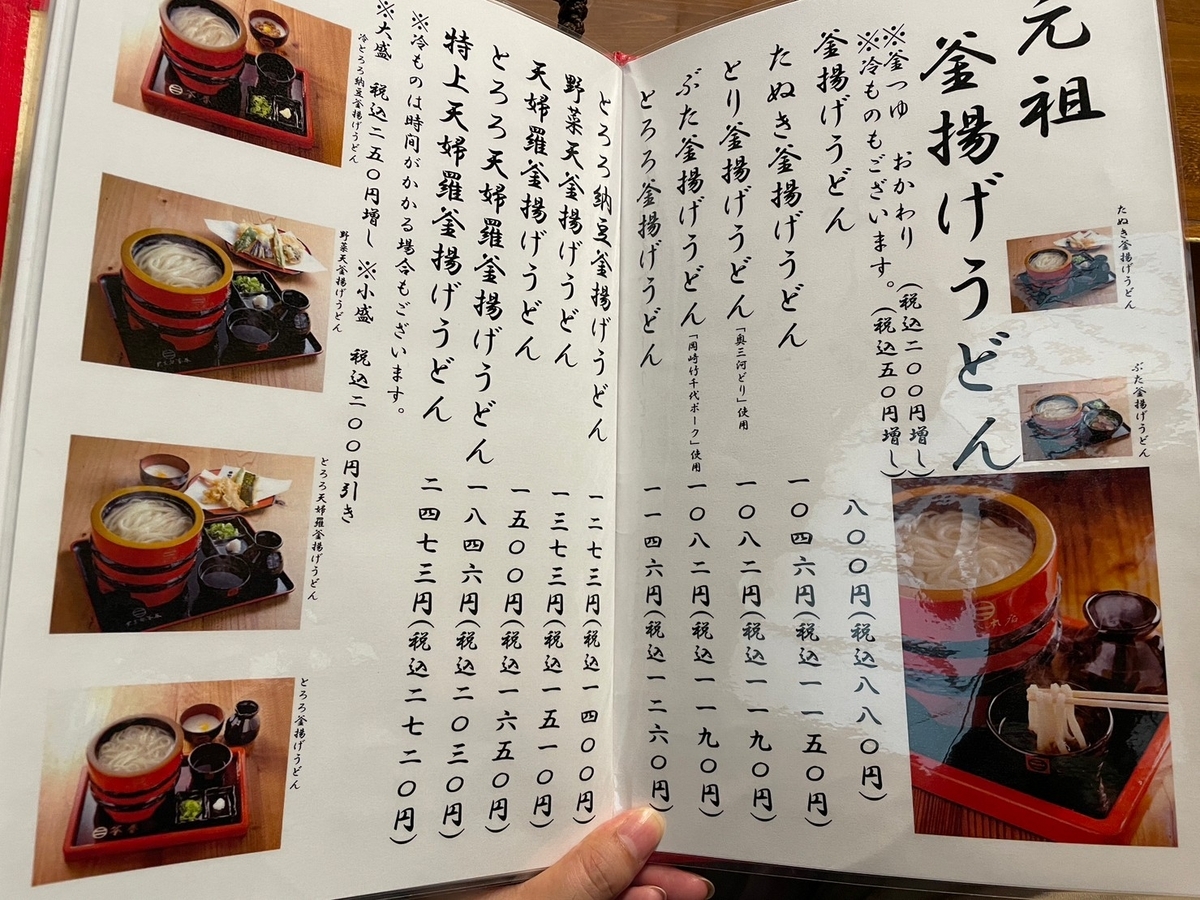 元祖
釜揚げうどん
※釜つゆ おかわり (税込二〇〇円増し)
※冷ものもございます。(税込五〇円増し)
釜揚げうどん 八〇〇円(税込八八〇円)
たぬき釜揚げうどん 一〇四六円(税込一一五〇円)
とり釜揚げうどん「奥三河どり」使用 一〇八二円(税込一一九〇円)
ぶた釜揚げうどん「岡崎竹千代ポーク」使用 一〇八二円(税込一一九〇円)
とろろ釜揚げうどん 一一四六円(税込一二六〇円)
たぬき釜揚げうどん
ぶた釜揚げうどん
とろろ納豆釜揚げうどん 一二七三円(税込一四〇〇円)
野菜天釜揚げうどん 一三七三円(税込一五一〇円)
天婦羅釜揚げうどん 一五〇〇円(税込一六五〇円)
とろろ天婦羅釜揚げうどん 一八四六円(税込二〇三〇円)
特上天婦羅釜揚げうどん 二四七三円(税込二七二〇円)
※冷ものは時間がかかる場合もございます。
※大盛 税込二五〇円増し ※小盛 税込二〇〇円引き
冷とろろ納豆釜揚げうどん
野菜天釜揚げうどん
とろろ天婦羅釜揚げうどん
とろろ釜揚げうどん